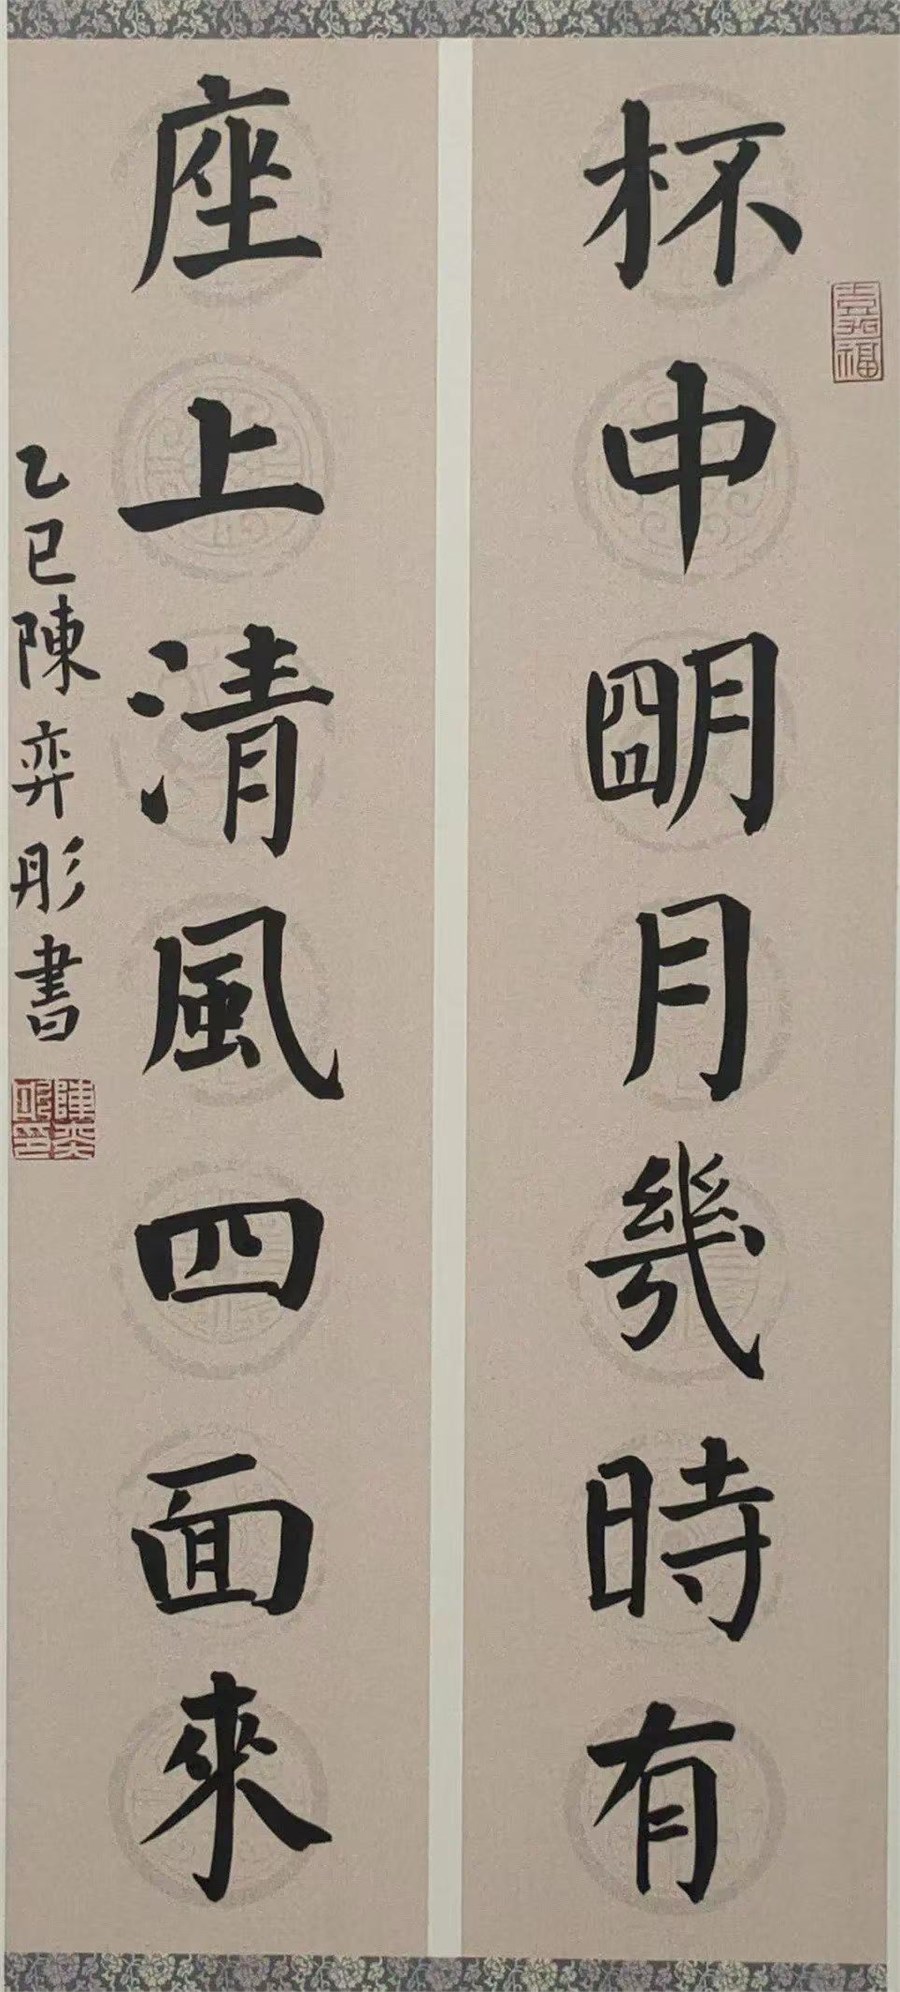 杯中明月幾時有
座上清風四面來
乙巳陳弈彤書